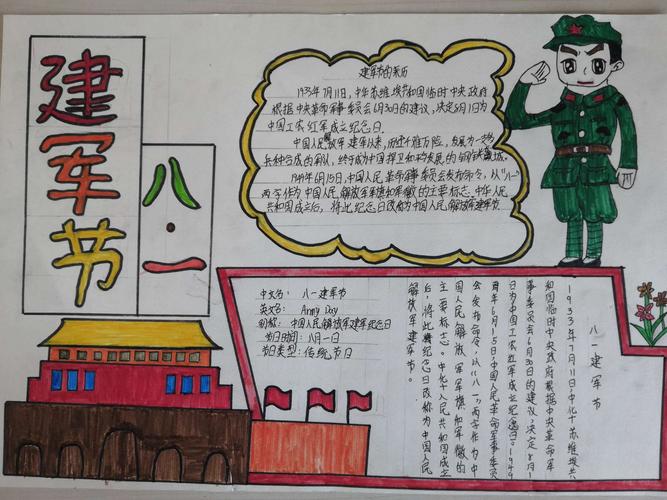 建军节
八·一
建军节的来历
1933年7月11日,中华苏维埃共和国临时中央政府
根据中央革命军事委员会6月30日的建议,决定8月1日为
中国工农红军成立纪念日.
中国人民解放军建军以来,历经千难万险,发展为一支多
兵种合成的军队,终于成为中国捍卫和平发展的钢铁长城。
1949年6月15日,中国人民革命军事委员会发布命令,以"八一"
两字作为中国人民解放军军旗和军徽的主要标志.中华人民
共和国成立后,将此纪念日改称为中国人民解放军建军节.
中文名:八一建军节
英文名:Army Day
别称:中国人民解放军建军纪念日
节日时间:八月一日
节日类型:传统节日
八一建军节
1933年7月11日,中华苏维埃共
和国临时中央政府根据中央革命军
事委员会6月30日的建议,决定8月1
日为中国工农红军成立纪念日。1949
年6月15日,中国人民革命军事委员
会发布命令,以"八一"两字作为中
国人民解放军军旗和军徽的
主要标志。中华人民共和国成立
后,将此纪念日改称为中国人民
解放军建军节。